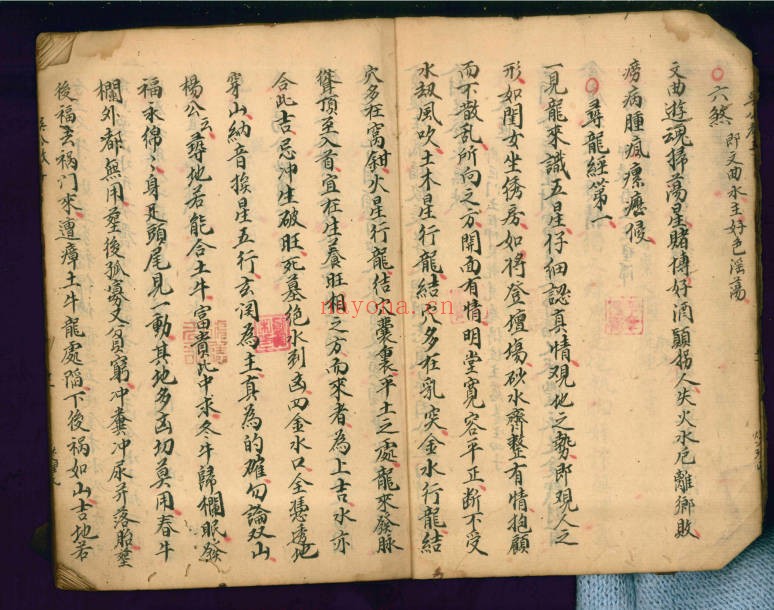 六煞 即文曲水主好色淫蕩
文曲遊魂掃蕩星賭博好酒顛拐人失火水厄離鄉敗
癆病腫瘋瘰癧侵
尋龍經第一
一見龍來識五星仔細認真情覌地之勢即覌人之
形如閨女坐綉房如將登壇塲砂水齊整有情抱顧
而不散乱所向之方開面有情明堂寬容平正断不受
水刼風吹土木星行龍結穴多在乳突金水行龍結
穴多在窩鉗火星行龍結穴囊裏平土之處龍來發脉
聳頂至入首宜在生養旺相之方而來者為上吉水亦
合此吉忌沖生破旺死墓绝水到凶四金水口全憑透地
穿山納音挨星五行玄関為主真為的確勿論双山
楊公云尋地若能合土牛富貴此中求冬牛歸欄眠發
福永綿〻身足頭尾見一動其地多凶切莫用春牛
欄外都無用塟後孤寡又貧窮冲糞冲尿并落
後福去祸门來遭瘴土牛龍處陷下後祸如山吉地若
nayona.cn